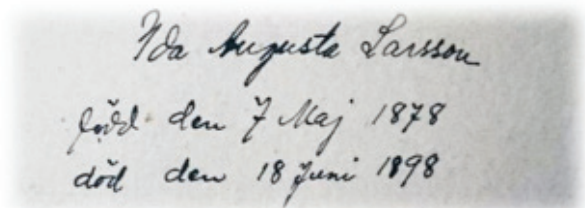 Ida Augusta Larsson
född den 7 Maj 1878
död den 18 Juni 1898